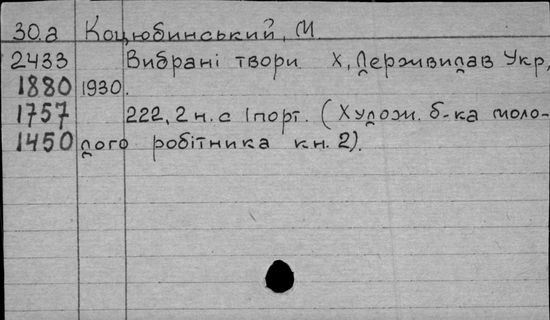 30.а Коцюбинський, М.
2433 Вибрані твори Х, Держвидав Укр,
1880 1930.
1757 222, 2 н. с 1 порт. (Худож. б-ка моло-
1450 дого робітника кн. 2).